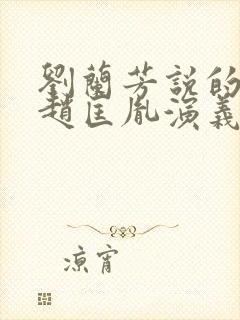 劉蘭芳説的
趙匡胤演義
涼宵